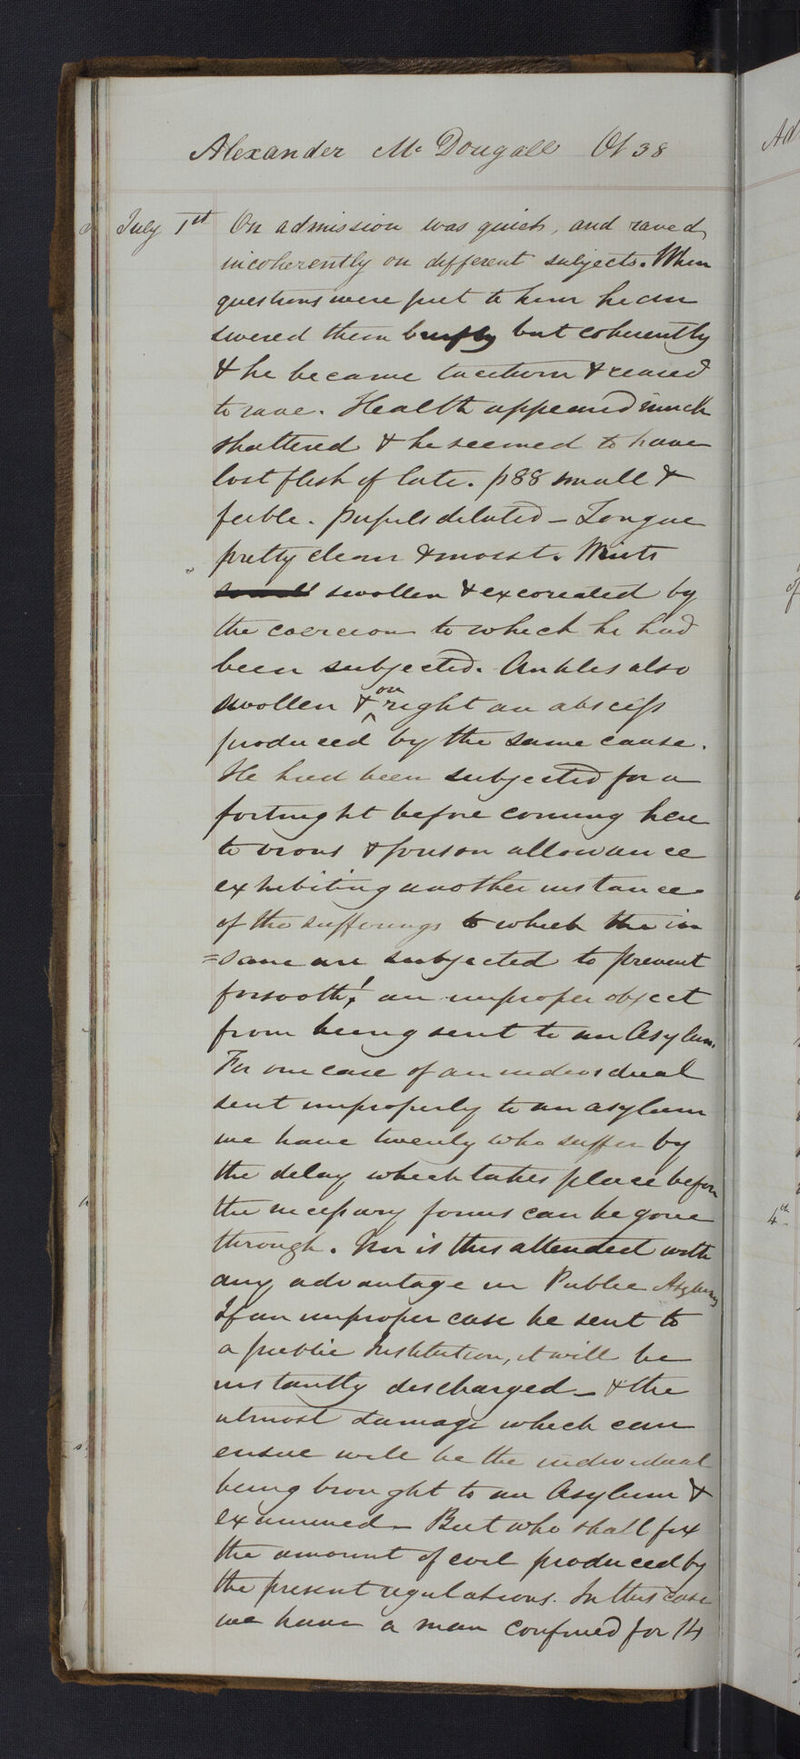 Alexander McDougall Æt 38
July 1st On admission was quiet, and raved
incoherently on different subjects. When
questions were put to him he an
swered them briefly but coherently
& he became taciturn & ceased
to rave. Health appeared much
shattered & he seemed to have
lost flesh of late. p 88 small &
feeble. pupils dilated – Tongue
pretty clean & moist. Wrists
swollen & excoriated by
the coercion to which he had
been subjected. Ankles also
swollen & on right an abscess
produced by the same cause.
He had been subjected for a
fortnight before coming here
to irons & prison allowance
exhibiting another instance
of the sufferings to which the in
=sane are subjected to prevent
forsooth! an improper object
from being sent to an Asylum.
For one case of an individual
sent improperly to an asylum
we have twenty who suffer by
the delay which takes place before
the necessary forms can be gone
through. Nor is this attended with
any advantage in Public Asylums
If an improper case be sent to
a public Institution, it will be
instantly discharged – & the
utmost damage which can
ensue will be the individual
being brought to an Asylum &
examined – But who shall fix
the amount of evil produced by
the present regulations. In this case
we have a man confined for 14
Ad
4th